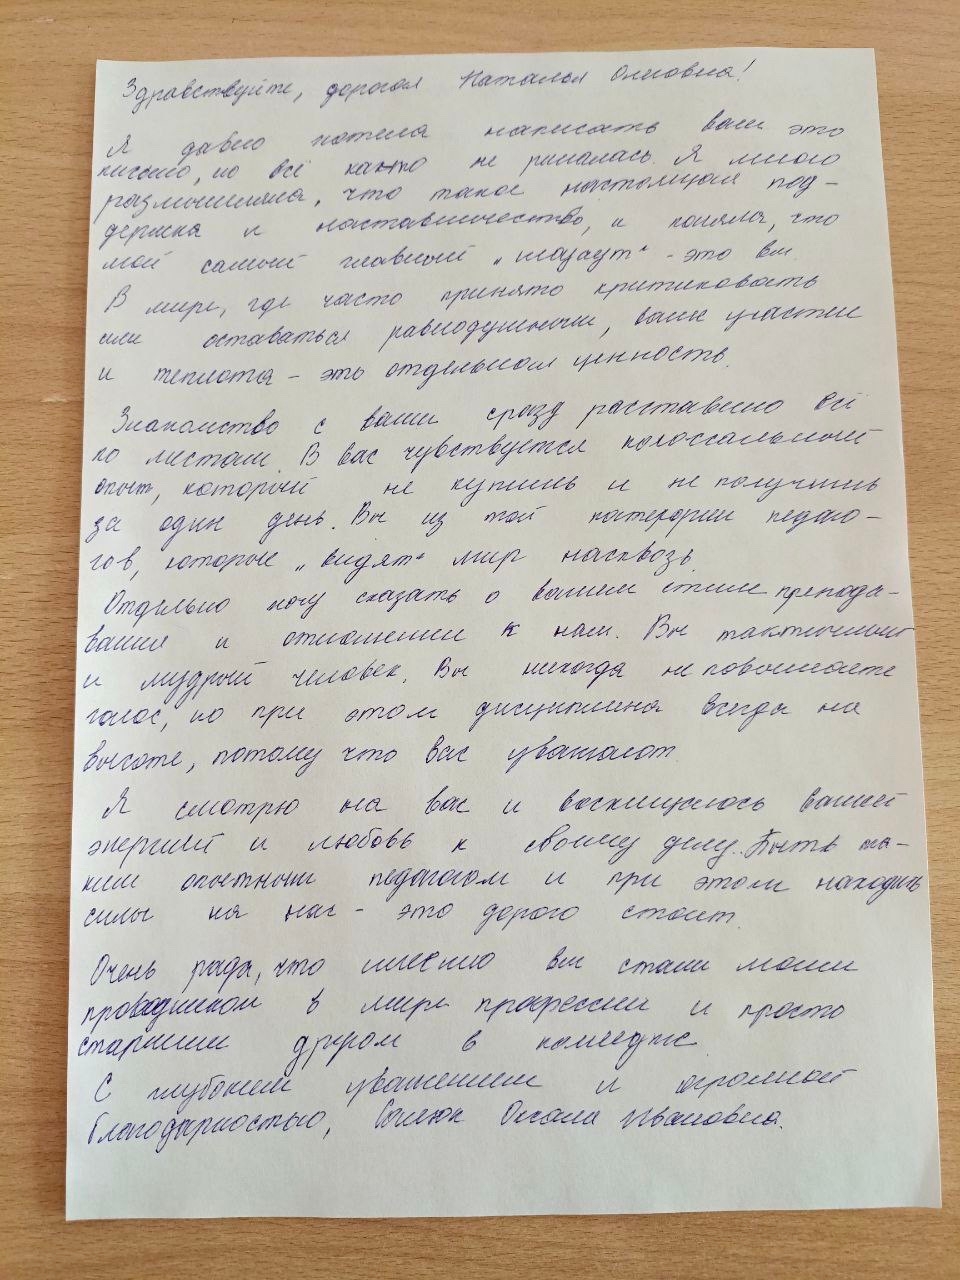 Здравствуйте, дорогая Наталья Олеговна!
Я давно хотела написать вам это
письмо, но всё как-то не решалась. Я много
размышляла, что такое настоящая под-
держка и наставничество, и поняла, что
мой самый главный „ - это вы.
В мире, где часто принято критиковать
или оставаться равнодушными, ваше участие
и теплота - это отдельная ценность.
Знакомство с вами сразу расставило всё
по местам. В вас чувствуется колоссальный
опыт, который не купишь и не получишь
за один день. Вы из той категории педаго-
гов, которые „видят“ мир насквозь.
Отдельно хочу сказать о вашем стиле препода-
вания и отношении к нам. Вы тактичный
и мудрый человек. Вы никогда не повышаете
голос, но при этом дисциплина всегда на
высоте, потому что вас уважают.
Я смотрю на вас и восхищаюсь вашей
энергией и любовь к своему делу. Быть та-
ким опытным педагогом и при этом находить
силы на нас - это дорого стоит.
Очень рада, что именно вы стали моим
проводником в мире профессии и просто
старшим другом в колледже.
С глубоким уважением и огромной
благодарностью, Оксана Ивановна.